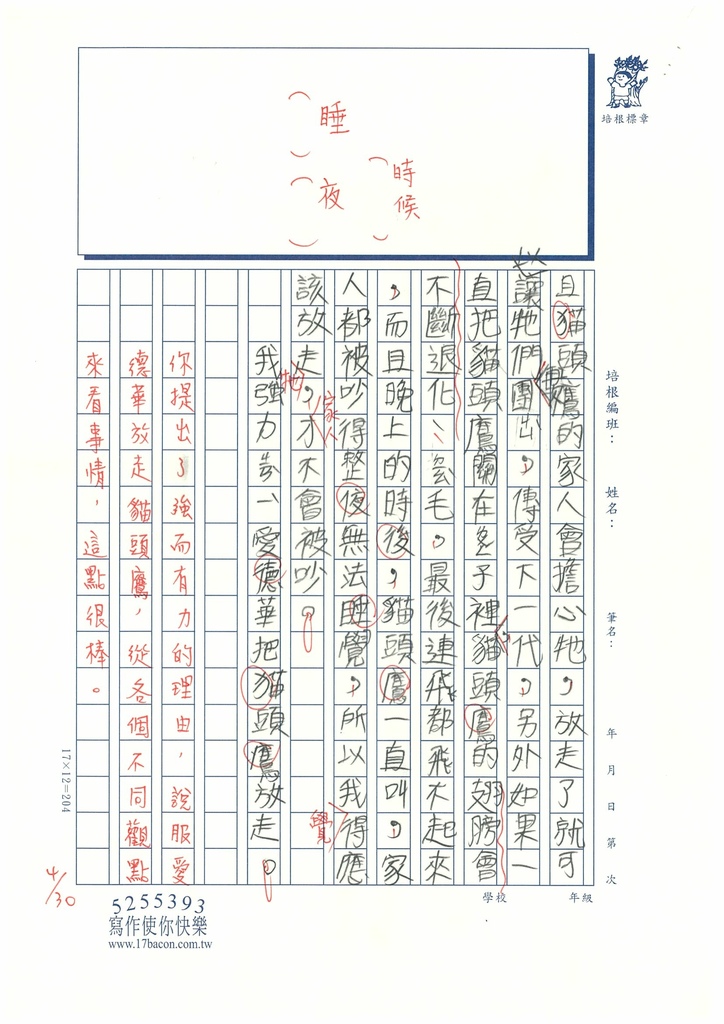 培根標章
睡
夜
時候
且貓頭鷹的家人會擔心牠,放走了就可
以讓牠們團出,傳受下一代,另外如果一
直把貓頭鷹關在籠子裡貓頭鷹的翅膀會
不斷退化、毛。最後連飛都飛不起來
,而且晚上的時後,貓頭鷹一直叫,家
人都被吵得整夜無法睡覺,所以我得應
該放走,才不會被吵。
牠
家人
覺
我強力 愛德華把貓頭鷹放走。
你提出了強而有力的理由,說服愛
德華放走貓頭鷹,從各個不同觀點
來看事情,這點很棒。
4/30
培根編班:
姓名:
筆名:
年 月 日 第 次
學校 年級
17×12=204
5255393
寫作使你快樂
www.17bacon.com.tw